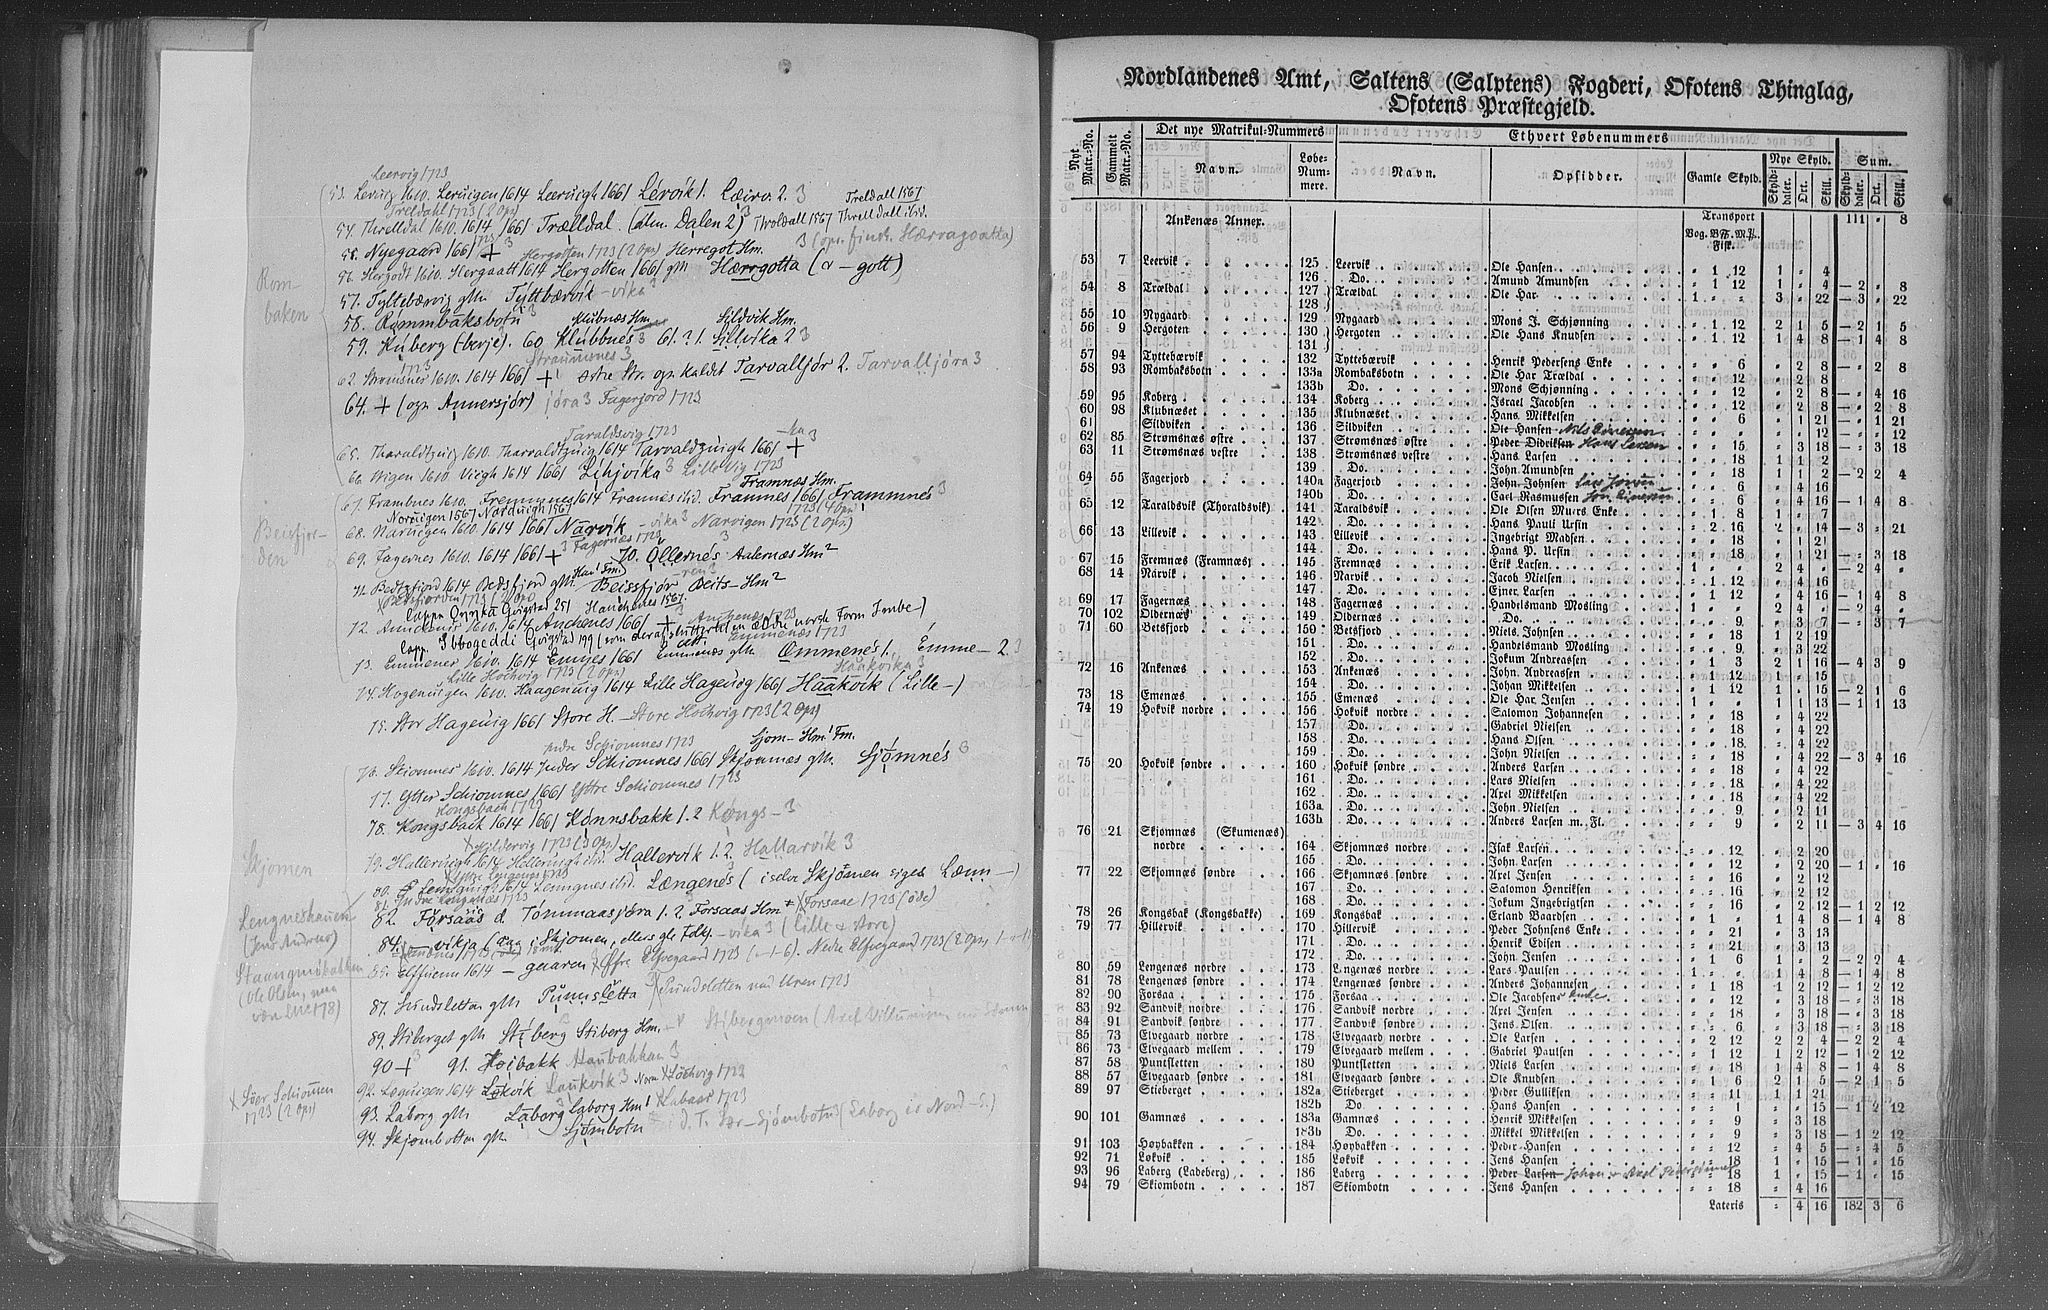 Leervig 1723
53. Leruig 1610. Leruigen 1614 Leeruigh 1661 Lérvik 1. Læirva 2. 3 Treldall 1567
Treldahl 1723 (2 Opr)
54. Threlldal 1610. 1614 1661 Trælldal. (alm. Dalen 2) 3 Throldall 1567 Threlldall ibid.
55. Nyegaard 1661 + 3 Hergotten 1723 (2 Opr) Herregot Hm. 3 (opr. finsk. Hærvagoatta)
56. Hergodt 1610. Hergaatt 1614 Hergotten 1661 gMn Hærrgotta (a - gott)
Rom-
baken
57. Tyltebærvig gMn Týttbærvik - vika 3
58. Rommbaksbotn 3 Klubnes Hm. Sildvik Hm.
59. Kuberg (berje). 60 Klubbnes 3 61. ? 1. Sillvika 2 3
Straumsnes 3
62. Stromsnes 1610. 1614 1661 + østre Str. op. kaldet Tarvalljór 2. Tarvalljóra 3
64. + (opr. Ánnersjór) jóra 3 Fagerjord 1723
Taraldsvig 1723
65. Tharaldtzuig 1610. Tharraldtzuig 1614 Tarvaldzuigh 1661 + 3
66. Wigen 1610. Viigh 1614 1661 Lihjvika 3 Lille Vig 1723
Framnæs Hm.
67. Frambnes 1610. Fremmnes 1614 Framnes ibid. Framnes 1661 Frammnés 3
Noruigen 1567 Norduigh 1567 1723 (4 Opr)
68. Naruigen 1610. 1614 1661 Narvik - vika 3 Narvigen 1723 (2 Opr)
Beisfjor-
den
69. Fagernes 1610. 1614 1661 + 3 Fagernes 1723 70. Ollernés 3 Aalernæs Hm 2
71. Bedtzfiord 1614 Bedsfjord gMn. Beissfjór Beits - Hm 2
Lappa Opmka Qvigstad 251 Hanckenes 1567.
72. Anckenes 1610. 1614 Anckenes 1661 + 3 Anckenes 1723
73. Emmenes 1610. 1614 Emnes 1661 Emmenæs gMn Ommenés 1. Emme - 2 3
Lille Hochvig 1723 (2 Opr) Haakvika 3
74. Hogenuigen 1610. Haagenuig 1614 Lille Hagenuig 1661 Haakvik (Lille -)
75. Stor Hageuig 1661 Store H. - Store Hochvig 1723 (2 Opr)
Indre Schiomnes 1723 Sjom - Hm 1 Fm.
76. Skiomnes 1610. 1614 Inder Schiomnes 1661 Skjomnes gMn Sjómnés 3
77. Ytter Schiomnes 1661 Yttre Schiomnes 1723
Kongsbach 1723
78. Kongsback 1614 1661 Kónnsbakk 1. 2 Kongs - 3
Hildervig 1723 (3 Opr)
79. Halleruigh 1614 Halleruigh ibid. Hallervik 1. 2. Hallarvik 3
Skjomen
80. Lennguigh 1614 Lenngnes ibid. Længenés (i selve Skjómen siges Lænn -)
81. Indre Lengenes 1723
Lengneshauen
(Jens Andreas)
82. Forsaas d. Tómmaasjóra 1. 2. Forsaas Hm Forsaae 1723 (öde)
84. - vikja (aaa i Skjomen, ellers gls Folk). - vika 3 (Lille & Store)
Staangmökakken
(Ole Olsen,
85. Elffuenn 1614 - gaaren Øfre Elfvegaard 1723. Nedre Elfvegaard 1723 (2 Opr)
87. Sundsletten gMn Púnnsletta Pundsletten ved Uren 1723
89. Stiberget gMn Stiberg Stiberg Hm. Stibergmoen
90 + 3 91. Hoibakk Haubakkan 3
92. Laguigen 1614 Lokvik Laukvik 3 Norra Lochvig 1723
Söer Schiomen
1723 (2 Opr)
93. Laborg gMn Láborg Laborg Hm 1 Labaas 1723
94. Skjombotten gMn Sjómbotn
Nordlandenes Amt, Saltens (Salptens) Fogderi, Ofotens Thinglag,
Ofotens Præstegjeld.
Nyt Matr.-No. Gammelt Matr.-No. Det nye Matrikul-Nummers Ethvert Løbenummers
Navn. Løbe-Nummere. Navn. Opsidder. Gamle Skyld. Nye Skyld. Sum.
Skylddaler. Ort. Skill. Skylddaler. Ort. Skill.
Ankenæs Annex. Transport 111 " 8
Vog. Bff. Mf. Fisk.
53 7 Leervik 125 Leervik Ole Hansen " 1 12 1 " 4
126 Do. Amund Amundsen " 1 12 1 " 4 — 2 " 8
54 8 Trældal 127 Trældal Ole Har 1 " " 3 " 22 — 3 " 22
128
55 10 Nygaard 129 Nygaard Mons J. Schjønning " 1 12 2 1 5 — 2 1 5
56 9 Hergoten 130 Hergoten Ole Hans Knudsen " 1 12 1 4 8 — 1 4 8
131
57 94 Tyttebærvik 132 Tyttebærvik Henrik Pedersens Enke " " 6 " 2 8 — " 2 8
58 93 Rombaksbotn 133a Rombaksbotn Ole Har Trældal " " 12 " 2 8
133b Do. Mons Schjønning " " 12 " 2 8 — " 4 16
59 95 Koberg 134 Koberg Israel Jacobsen " " 12 " 2 8 — " 2 8
60 98 Klubnæset 135 Klubnæset Hans Mikkelsen " " 6 " 1 21 — " 1 21
61 Sildviken 136 Sildviken Ole Hansen Nils Einersen " " " " " 12 — " " 12
62 85 Strømsnæs østre 137 Strømsnæs østre Peder Didriksen Hans Larsen " " 15 " 3 18 — " 3 18
63 11 Strømsnæs vestre 138 Strømsnæs vestre Hans Larsen " " 18 1 1 2
139 Do. John Amundsen " " 18 1 1 2 — 2 2 4
64 55 Fagerjord 140a Fagerjord John Johnsen " " 6 " 4 16
140b Do. Carl Rasmussen " " 6 " 4 16 — 1 4 8
65 12 Taraldsvik (Thoralsvik) 141 Taraldsvik Ole Olsen Muers Enke " 1 8 1 " 7
142 Do. Hans Pauli Ursin " 2 16 " " 14 — 3 " 21
66 13 Lillevik 143 Lillevik Ingebrigt Madsen " " 18 1 " 21
144 Do. Hans P. Ursin " " 18 " 1 21 — " 3 18
67 15 Fremnæs (Framnæs) 145 Fremnæs Erik Larsen 1 " " 2 4 " — 2 4 "
68 14 Narvik 146 Narvik Jacob Nielsen " 1 12 " 4 16
147 Do. Ejner Larsen " 1 12 " 4 16 — 1 4 8
69 17 Fagernæs 148 Fagernæs Handelsmand Mosling 1 " " 2 4 " — 2 4 "
70 102 Oldernæs 149 Oldernæs Do. " " 9 " 3 7 — " 3 7
71 60 Betsfjord 150 Betsfjord Niels Johnsen " " 18 1 2 19
151 Do. Handelsmand Mosling " " 9 " 3 22
152 Do. Jokum Andreassen " 1 3 2 1 16 — 4 3 9
72 16 Ankenæs 153 Ankenæs John Andreassen " 1 12 1 " 15
154 Do. Johan Mikkelsen " 1 12 1 " 15 — 2 1 6
73 18 Emenæs 155 Emenæs Ole Har Jensen 1 " " 1 1 13 — 1 1 13
74 19 Hokvik nordre 156 Hokvik nordre Salomon Johannesen " " 18 " 4 22
157 Do. Gabriel Nielsen " " 18 " 4 22
158 Do. Hans Olsen " " 18 " 4 22
159 Do. John Nielsen " " 18 " 4 22 — 3 4 16
75 20 Hokvik søndre 160 Hokvik søndre Anders Larsen " " 18 " 4 22
161 Do. Lars Nielsen " " 18 " 4 22
162 Do. Axel Mikkelsen " " 18 " 4 22
163a Do. John Nielsen " " 9 " 2 11
163b Do. Anders Larsen m. Fl. " " 9 " 2 11 — 3 4 16
76 21 Skjomnæs (Skumenæs)
nordre 164 Skjomnæs nordre Isak Larsen " " 12 " 2 20
165 Do. John Larsen " " 12 " 2 20 — 1 " 16
77 22 Skjomnæs søndre 166 Skjomnæs søndre Axel Jensen " " 16 " 2 12
167 Do. Salomon Henriksen " " 16 " 2 12
168 Do. Jokum Ingebrigtsen " " 16 " 2 12 — 1 2 12
78 26 Kongsbak (Kongsbakke) 169 Kongsbak Erland Baardsen " 1 " 1 4 8 — 1 4 8
79 77 Hillervik 170 Hillervik Peder Johnsens Enke " " 21 " 3 13
171 Do. Henrik Edisen " " 21 " 3 13
172 Do. John Jensen " 1 6 1 " 2 — 2 2 4
80 59 Lengenæs nordre 173 Lengenæs nordre Lars Paulsen 1 " " 1 4 8 — 1 4 8
81 78 Lengenæs søndre 174 Lengenæs søndre Anders Johannesen " 1 18 1 2 12 — 1 2 12
82 90 Forsaa 175 Forsaa Ole Jacobsens Enke " " 12 " 3 18 — " 3 18
83 92 Sandvik nordre 176 Sandvik nordre Axel Jensen " " 18 " 3 18 — " 3 18
84 91 Sandvik søndre 177 Sandvik søndre Jens Olsen " " 6 " 3 18 — " 3 18
85 73 Elvegaard nordre 178 Elvegaard nordre Ole Larsen " 2 12 2 2 4 — 2 2 4
86 73 Elvegaard mellem 179 Elvegaard mellem Gabriel Paulsen " 1 12 1 2 12 — 1 2 12
87 58 Puntsletten 180 Puntsletten Niels Larsen " " 12 1 4 8 — 1 4 8
88 57 Elvegaard søndre 181 Elvegaard søndre Ole Knudsen " 1 6 2 1 5 — 2 1 5
89 97 Stieberget 182a Stieberget Peder Gulliksen " " 11 1 1 21
182b Do. Hans Hansen " " 1 " " 15 — 1 2 12
90 101 Gamnæs 183a Gamnæs Henrik Mikkelsen " " 9 " 3 18
183b Do. Mikkel Mikkelsen " " 9 " 3 18 — 1 2 12
91 103 Høybakken 184 Høybakken Peder Hansen " " 12 " 4 5 — " 4 5
92 71 Lokvik 185 Lokvik Jens Hansen " " 18 1 " 15 — 1 " 15
93 96 Laberg (Ladeberg) 186 Laberg Peder Larsen Johan " " 18 1 " 15 — 1 " 15
94 79 Skiombotn 187 Skiombotn Jens Hansen " " 18 " 4 16
Lateris " 4 16 182 3 6